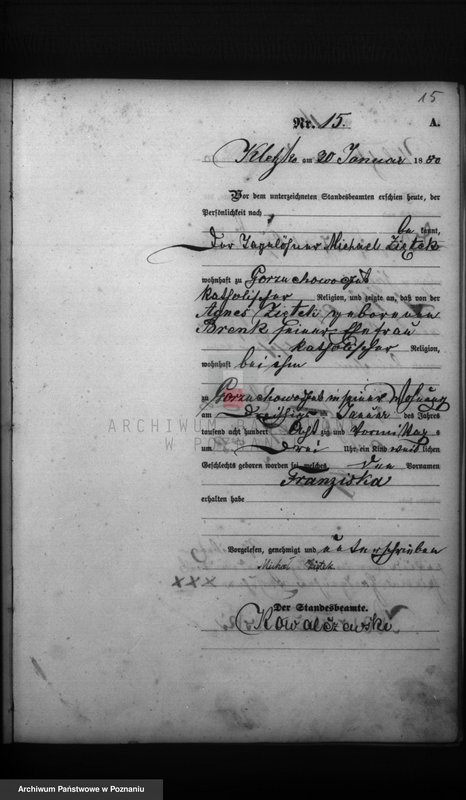 15
Nr. 15. A.
Kletzko am 20 Januar 1880
Vor dem unterzeichneten Standesbeamten erschien heute, der
Persönlichkeit nach
be kannt,
der Tagelöhner Michael Ziętek
wohnhaft zu Gorzuchowo
katholischer Religion, und zeigte an, daß von der
Agnes Ziętek geborenen
Brenk seiner Ehefrau
katholischer Religion,
wohnhaft bei ihm
zu Gorzuchowo in seiner Wohnung
am Januar des Jahres
tausend acht hundert Acht zig und Vormittag s
um Drei Uhr ein Kind weib lichen
Geschlechts geboren worden sei, welches den Vornamen
Franziska
erhalten habe
Vorgelesen, genehmigt und unterschrieben
Michał Ziętek
xxx
Der Standesbeamte.
Kowalczewski
ARCHIWUM PAŃSTWOWE
W POZNANIU
Archiwum Państwowe w Poznaniu